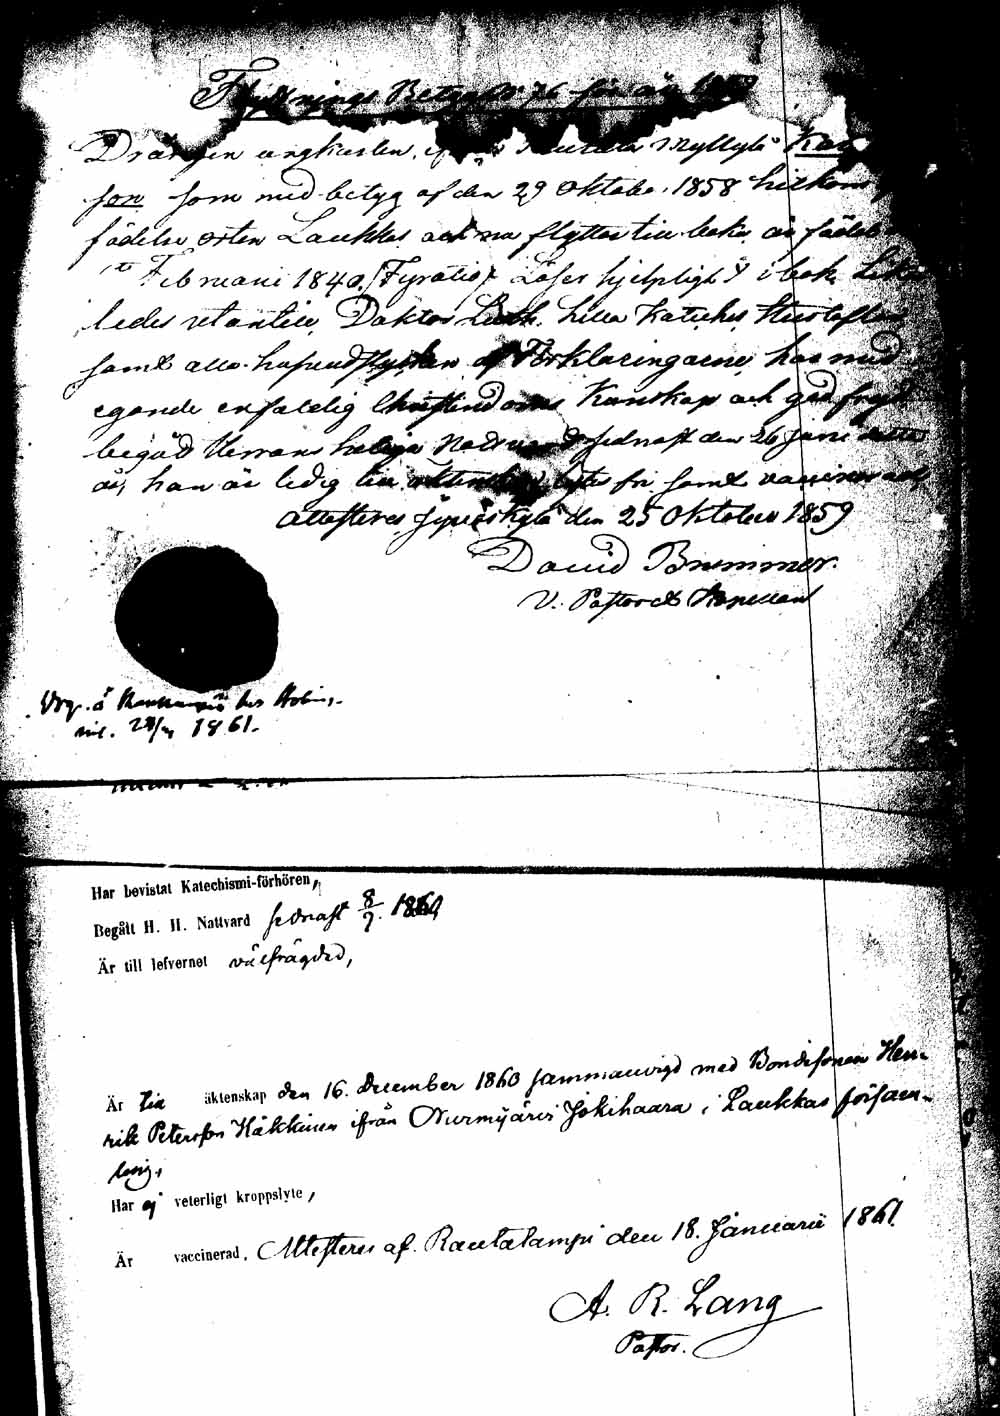 Flyttnings Betyg N 76 för år 1859
Drängen ungkarlen, Myllylä
son som med betyg af den 29 Oktober 1858 hitkom
födelse orten Laukkas och nu flyttar tillbaka är född
Februarii 1840 (Fyratio) Läser hjelpligt i bok
ledes utantill, Doktor Luth. Lilla Katekes, Hustaflan
samt alla hufvudstycken af Förklaringarne, har med
egande enfaldig Christendoms Kunskap och god frejd
begått Herrans heliga Nattvard sednast den 26 Juni detta
år, han är ledig till äktenskap, lytes fri samt vaccinerad
Attesteras Jyväskylä den 25 Oktober 1859
David Brummer.
V. Pastor et Kapellan
1861.
Har bevistat Katechismi-förhören,
Begått H. H. Nattvard sednast 8/7. 1860,
Är till lefvernet välfrägdad,
Är till äktenskap den 16. December 1860 sammanvigd med Bondesonen Hen-
rik Petersson Häkkinen ifrån Nurmijärvi Jokihaara i Laukkas försam-
ling,
Har ej veterligt kroppslyte,
Är vaccinerad, Attesteras af. Rautalampi den 18. Januarii 1861.
A. R. Lang
Pastor.